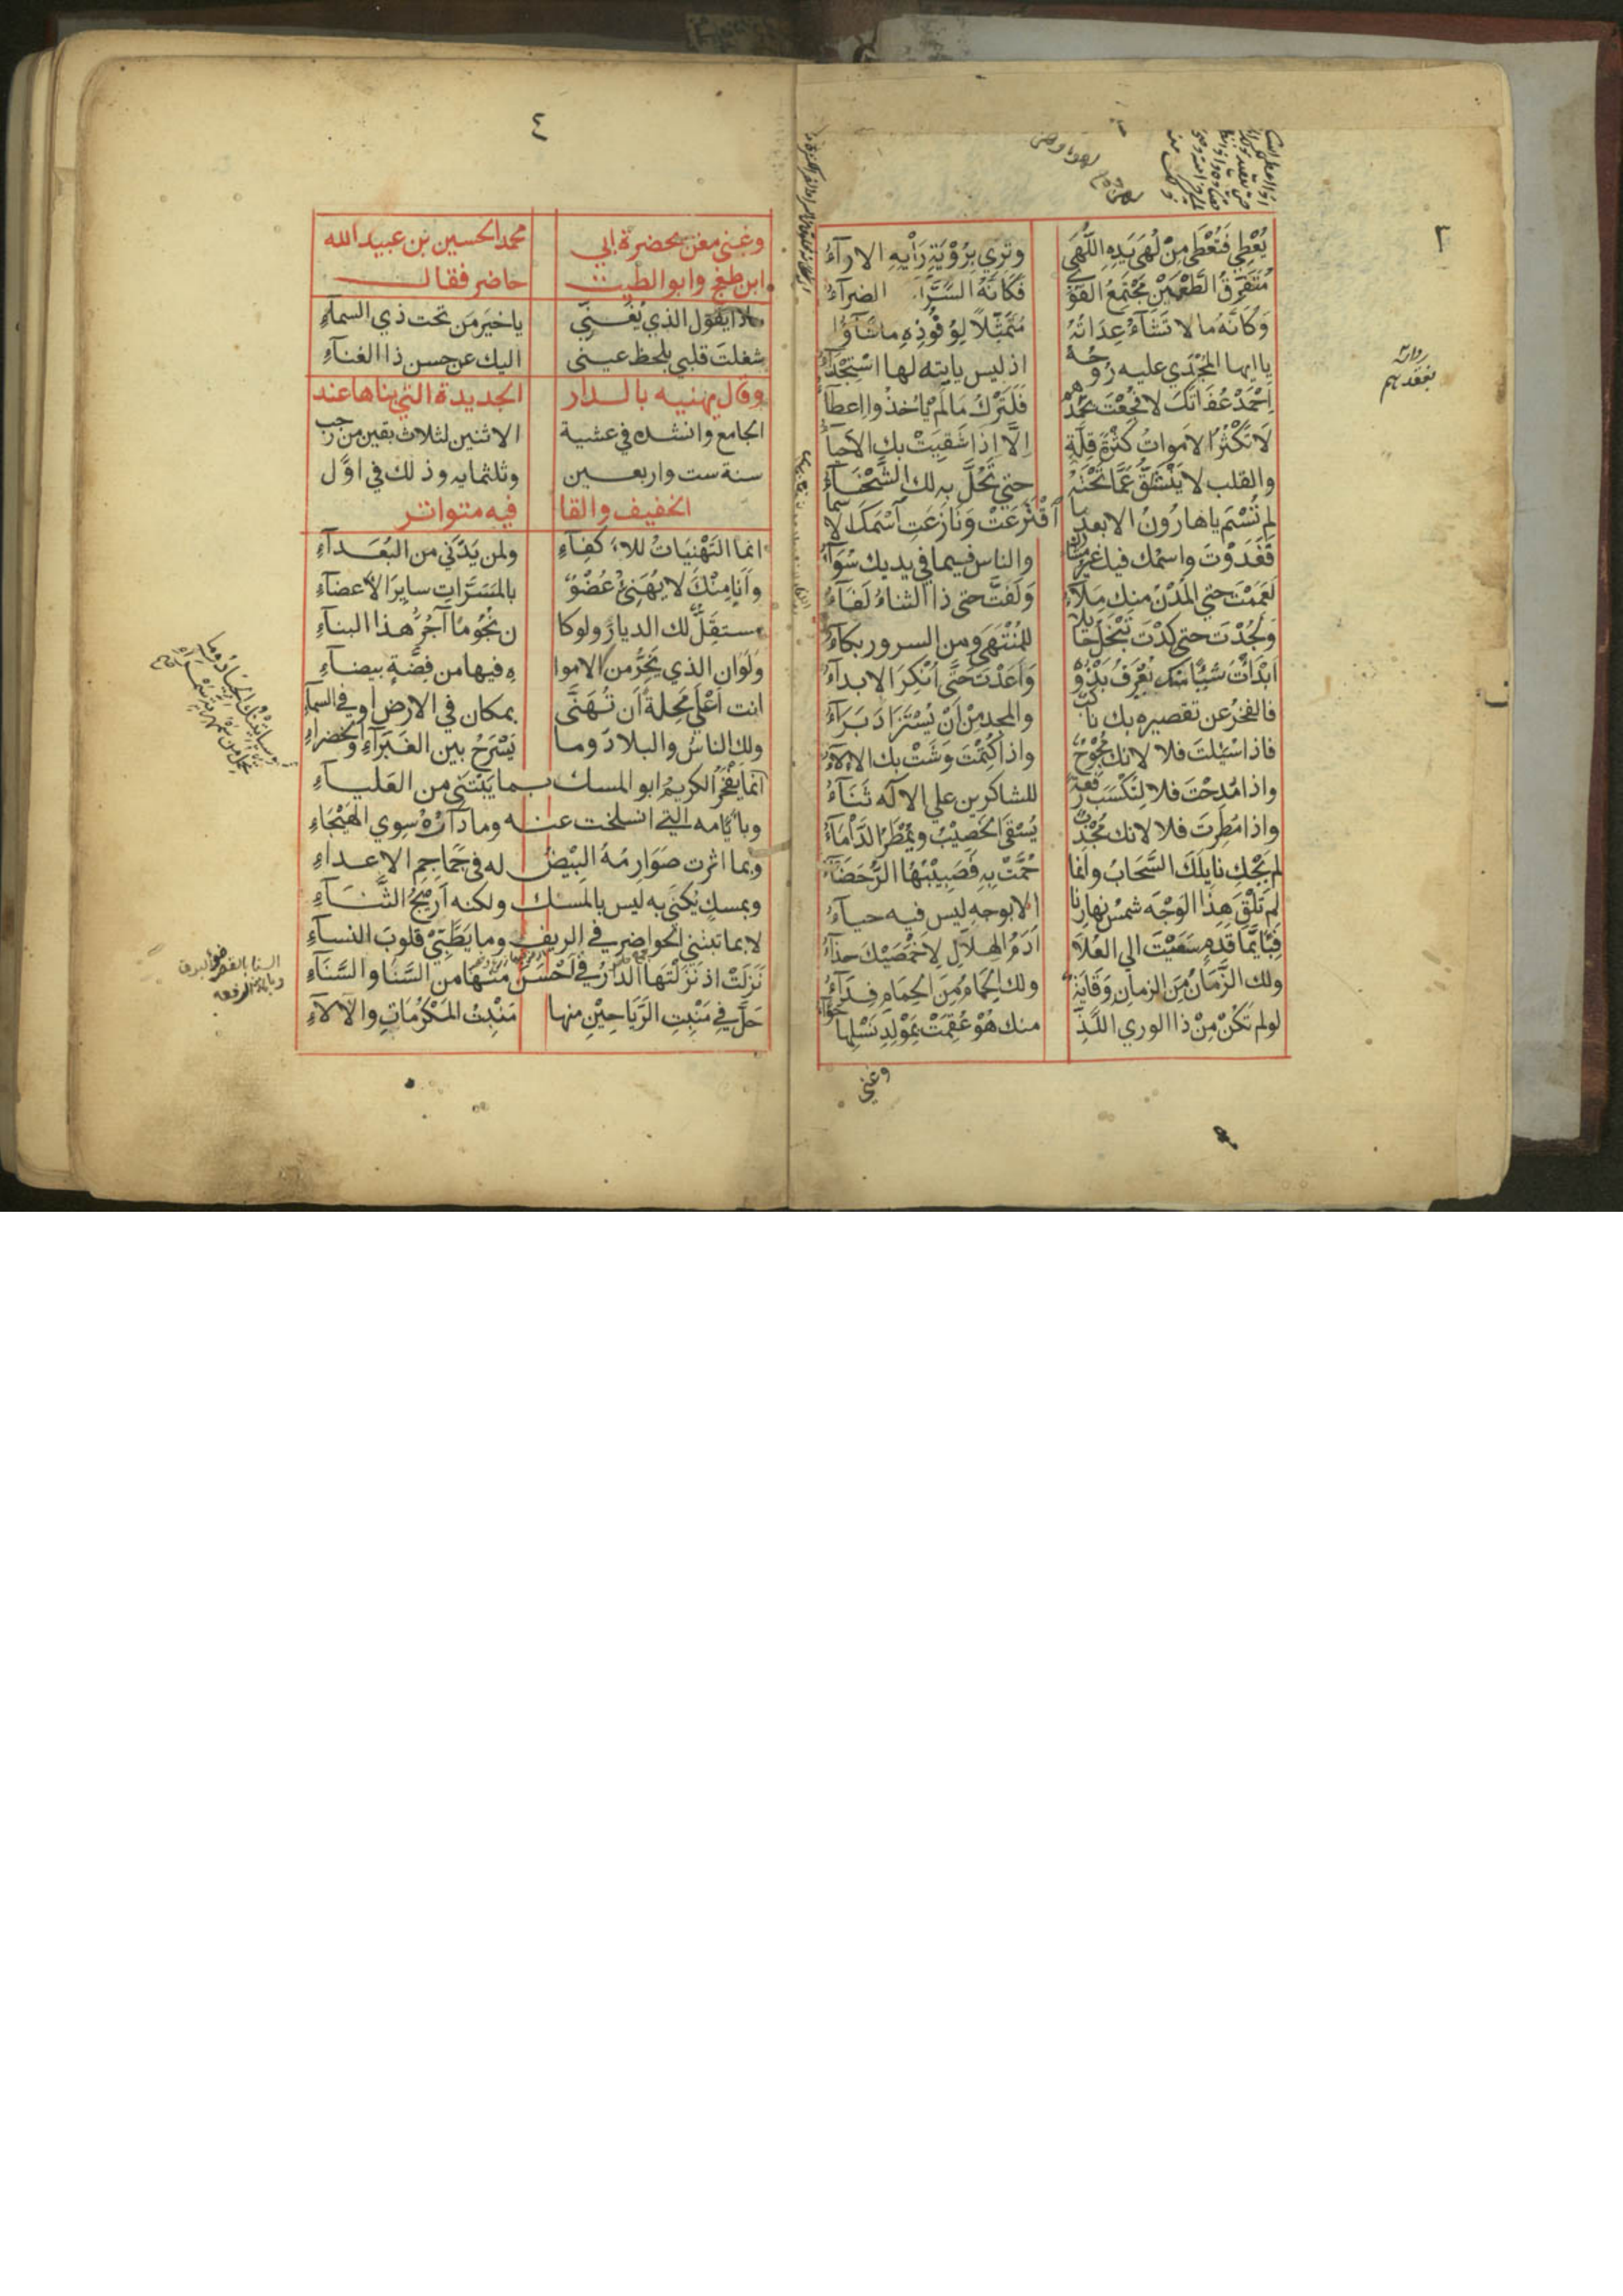 ٣
يُعْطِي فَتُعْطَى مِنْ لُهَى يَدِهِ اللُّهَى وَتَرَي بِرُؤْيَةِ رَأْيِهِ الاراۤءُ
مُتَفَرِّقُ الطَّعْمَيْنِ مُجْتَمِعُ القُوَى فَكَاَنَّهُ السَّرَّاۤءُ الضراۤءُ
وَكَاَنَّهُ مَا لا تَشَاۤءُ عِدَاتُهُ مُتَمَثِّلاً لِوُفُوْدِهِ ماشَآؤُا
يا ايها المُجْدَي عليه رُوحُهُ اذ ليس ياتيه لها اسْتِجْدَاۤءُ
اِحْمَدْ عُفَاتَكَ لا فُجِعْتَ بِحَمْدِهِمْ فَلَتَرْكُ مَا لَمْ يَاْخُذُوا اِعطَاۤءُ
لَا تَكْثُرُ الاَمواتُ كَثْرَةَ قِلَّةٍ اِلَّا اِذَا شَقِيَتْ بك الاَحياۤءُ
والقلب لا يَنْشَقُّ عَمَّا تَحْتَهُ حتي تَحُلَّ به لك الشَّحْنَاۤءُ
لم تُسْمَ يا هارُونُ الا بعدما اَقْتَرَعَتْ وَنَازَعَتِ اَسْمَكَ الاَسماۤءُ
فَغَدَوْتَ واسمك فيك غير مشارك والناس فيما في يديك سَوَاۤءُ
لَعَمَمْتَ حتي المُدْنُ منك مِلَآءُ وَلَفُتَّ حتى ذا الثناءُ لَفَاۤءُ
وَلَجُدْتَ حتى كِدْتَ تَبْخَلُ حَائلا لِلمُنْتَهَى ومن السرور بكاۤءُ
اَبْدَأْتَ شَيْئًا منك يُعْرَفُ بَدْؤُهُ وَاَعَدْتَ حَتَّى اُنْكِرَ الابداۤءُ
فالفخرُ عن تقصيره بك ناكب والمجد مِنْ اَنْ يُسْتَزَادَ بَرَاۤءُ
فاذا سُئِلتَ فلا لانك مُحْوِجٌ واذا كُتِمْتَ وَشَتْ بك الالاۤءُ
واذا مُدِحْتَ فلا لِتَكْسَبَ رِفعةً للشاكرين علي الاله ثَنَاۤءُ
واذا مُطِرتَ فلا لانك مُجْدِبٌ يُسْقَى الخَصِيْبُ ويُمْطَرُ الدَّأْمَاۤءُ
لم تَحْكِ نايلَكَ السَّحَابُ وانما حُمَّتْ بِهِ فَصَبِيْبُهَا الرُّحَضَاۤءُ
لم تَلْقَ هذا الوَجْهَ شمسُ نهارِنا الا بوجهٍ ليس فيه حياۤءُ
فَبِاَيِّمَا قَدَمٍ سَعَيْتَ الي العُلاَ اَدَمُ الهِلاَلِ لِاَخْمَصَيْكَ حذاۤءُ
ولك الزَّمَانُ مِنَ الزمانِ وِقَايَةٌ ولك الحِمَامُ مِنَ الحِمَامِ فِدَاۤءُ
لو لم تَكُنْ مِنْ ذا الوري اللَّذْ منك هُوْ عَقِمَتْ بِمَوْلِدِ نَسْلِها حَوّاۤءُ
وغني
٤
وغني مغن بحضرة ابي محمد الحسين بن عبيد الله
ابن طغج وابو الطيب حاضر فقال
ماذا يقول الذي يُغَنِّي يا خيرَ مَن تحت ذي السماۤءِ
شغلتَ قلبي بلحظ عيني اليك عن حسن ذا الغناۤءِ
وقال يهنيه بالدار الجديدة التي بناها عند
الجامع وانشده في عشية الاثنين لثلاث بقين من رجب
سنة ست واربعين وثلثمايه وذلك في اوّل
الخفيف والقافيه متواتر
انما التَهْنِيَاتُ للاَكفِاۤءِ ولمن يَدَّنِي من البُعَداۤءِ
وأنا مِنْكَ لا يُهَنِّئُ عُضْوٌ بالمَسَرَّاتِ سايِرَ الاَعضاۤءِ
مستقِلٌّ لك الديارَ ولوكا ن نُجُومًا آجُرُّ هذا البناۤءِ
وَلَو اَن الذي يَخِرُّ من الاموا هِ فيها من فِضَّةٍ بيضاۤءِ
انت اَعْلَي مَحِلةً اَن تُهَنَّى بمكان في الارضِ او في السماۤءِ
ولك الناسُ والبلادُ وما يَسْرَحُ بين الغَبَرَاۤءِ والخضراۤءِ
انما يَفْخَرُ الكريمُ ابو المسك بما يَبْتَنِي من العَلياۤءِ
وبأيّامه التي انسلخت عنه وما دَارُهُ سِوي الهَيْجَاءِ
وبما اثرت صَوَارِمُهُ البِيْضُ له في جَمَاجِمِ الاعداۤءِ
وبمسكٍ يُكنَى به ليس بالمسك ولكنه اَرِيْجُ الثَّنَاۤءِ
لا بما تبتني الحواضر في الريف وما يَطَّبِيْ قلوبَ النساۤءِ
نَزَلَتْ اذ نَزَلْتَهَا الدَّارُ في اَحْسَنَ منها من السَّنَا والسَّنَاۤءِ
حَلَّ في مَنْبِتِ الرَّيَاحِيْنِ منها مَنْبِتُ المَكْرُمَاتِ والاَلاۤءِ